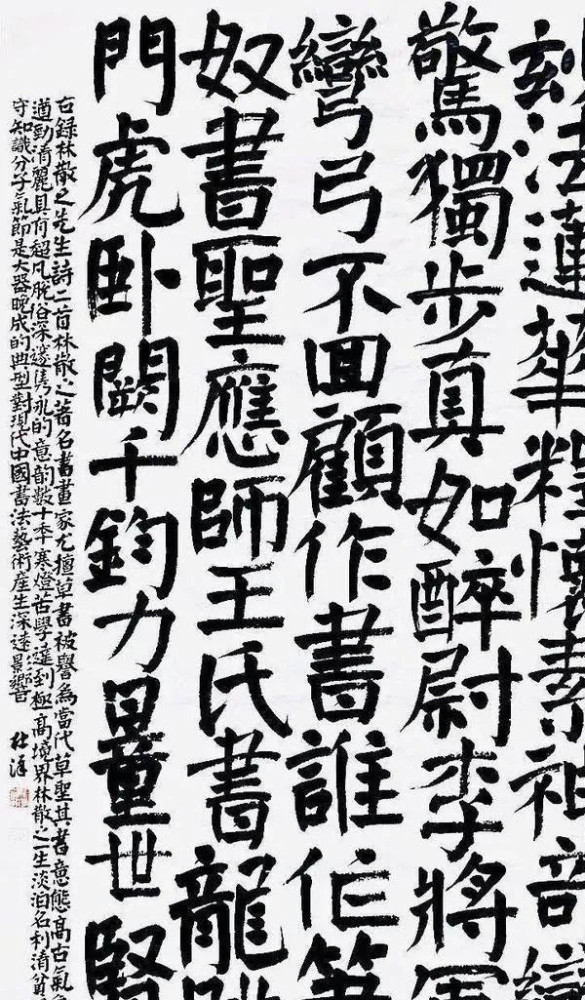 法蓮華釋懷素
驚獨步真如醉尉李將軍
彎弓不回顧作書誰作筆
奴書聖應師王氏書龍跳
門虎卧闕千鈞力量世賢
右錄林散之先生詩二首林散之著名書畫家尤擅草書被譽為當代草聖其書意態高古氣
遒勁清麗具有超凡脫俗深邃雋永的意韵數十年寒燈苦學達到極高境界林散之一生淡泊名利清貧
守知識分子氣節是大器晚成的典型對現代中國書法藝術產生深遠影響